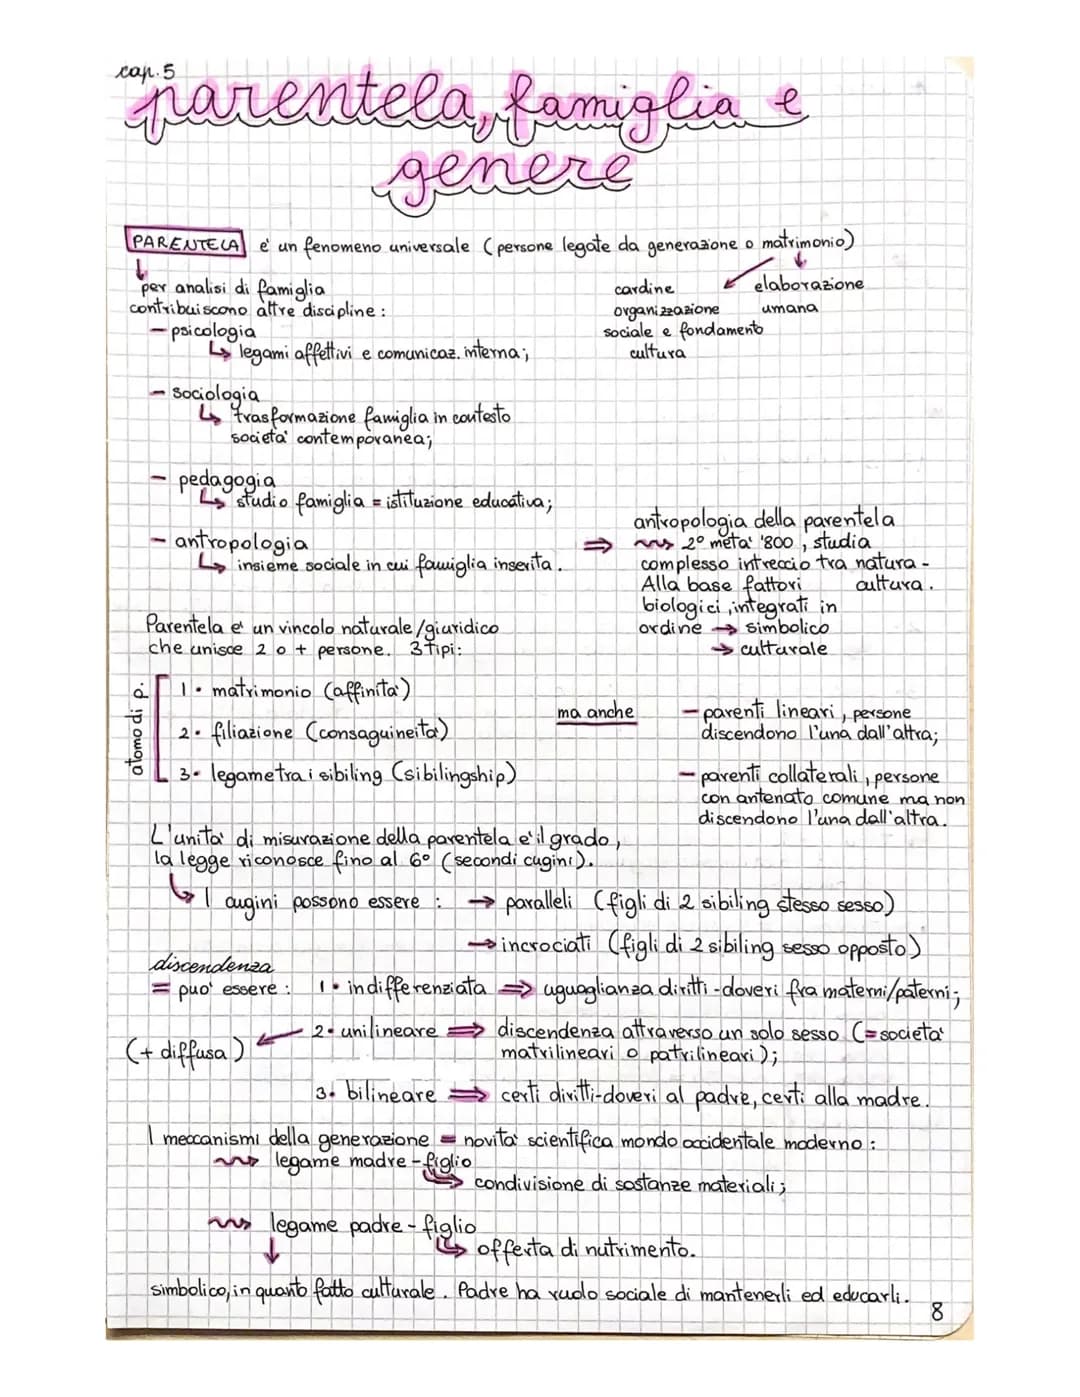 cap. 5
parentela, famiglia e
genere
PARENTELA e' un fenomeno universale (persone legate da generazione o matrimonio)
per analisi di famiglia
contribuiscono altre discipline :
cardine
organizzazione
sociale e fondamento
cultura
elaborazione
umana
– psicologia
↳ legami affettivi e comunicaz. interna ;
– sociologia
↳ trasformazione famiglia in contesto
societa' contemporanea;
– pedagogia
↳ studio famiglia = istituzione educativa;
– antropologia
↳ insieme sociale in cui famiglia inserita.
⇒ antropologia della parentela
2° meta' '800, studia
complesso intreccio tra natura -
Alla base fattori cultura.
biologici, integrati in
ordine → simbolico
→ culturale
Parentela e' un vincolo naturale/giuridico
che unisce 2 o + persone. 3 tipi:
atomo di p.
1• matrimonio (affinita')
2• filiazione (consaguineita')
3• legame tra i sibiling (sibilingship)
ma anche
– parenti lineari, persone
discendono l'una dall'altra;
– parenti collaterali, persone
con antenato comune ma non
discendono l'una dall'altra.
L'unita' di misurazione della parentela e' il grado,
la legge riconosce fino al 6° (secondi cugini).
↳ I cugini possono essere : → paralleli (figli di 2 sibiling stesso sesso)
→ incrociati (figli di 2 sibiling sesso opposto)
discendenza
= puo' essere : 1• indifferenziata ⇒ uguaglianza diritti-doveri fra materni/paterni;
(+ diffusa) ← 2• unilineare ⇒ discendenza attraverso un solo sesso (= societa'
matrilineari o patrilineari);
3• bilineare ⇒ certi diritti-doveri al padre, certi alla madre.
I meccanismi della generazione = novita' scientifica mondo occidentale moderno :
legame madre - figlio
↳ condivisione di sostanze materiali;
legame padre - figlio
↳ offerta di nutrimento.
simbolico, in quanto fatto culturale. Padre ha ruolo sociale di mantenerli ed educarli.
8